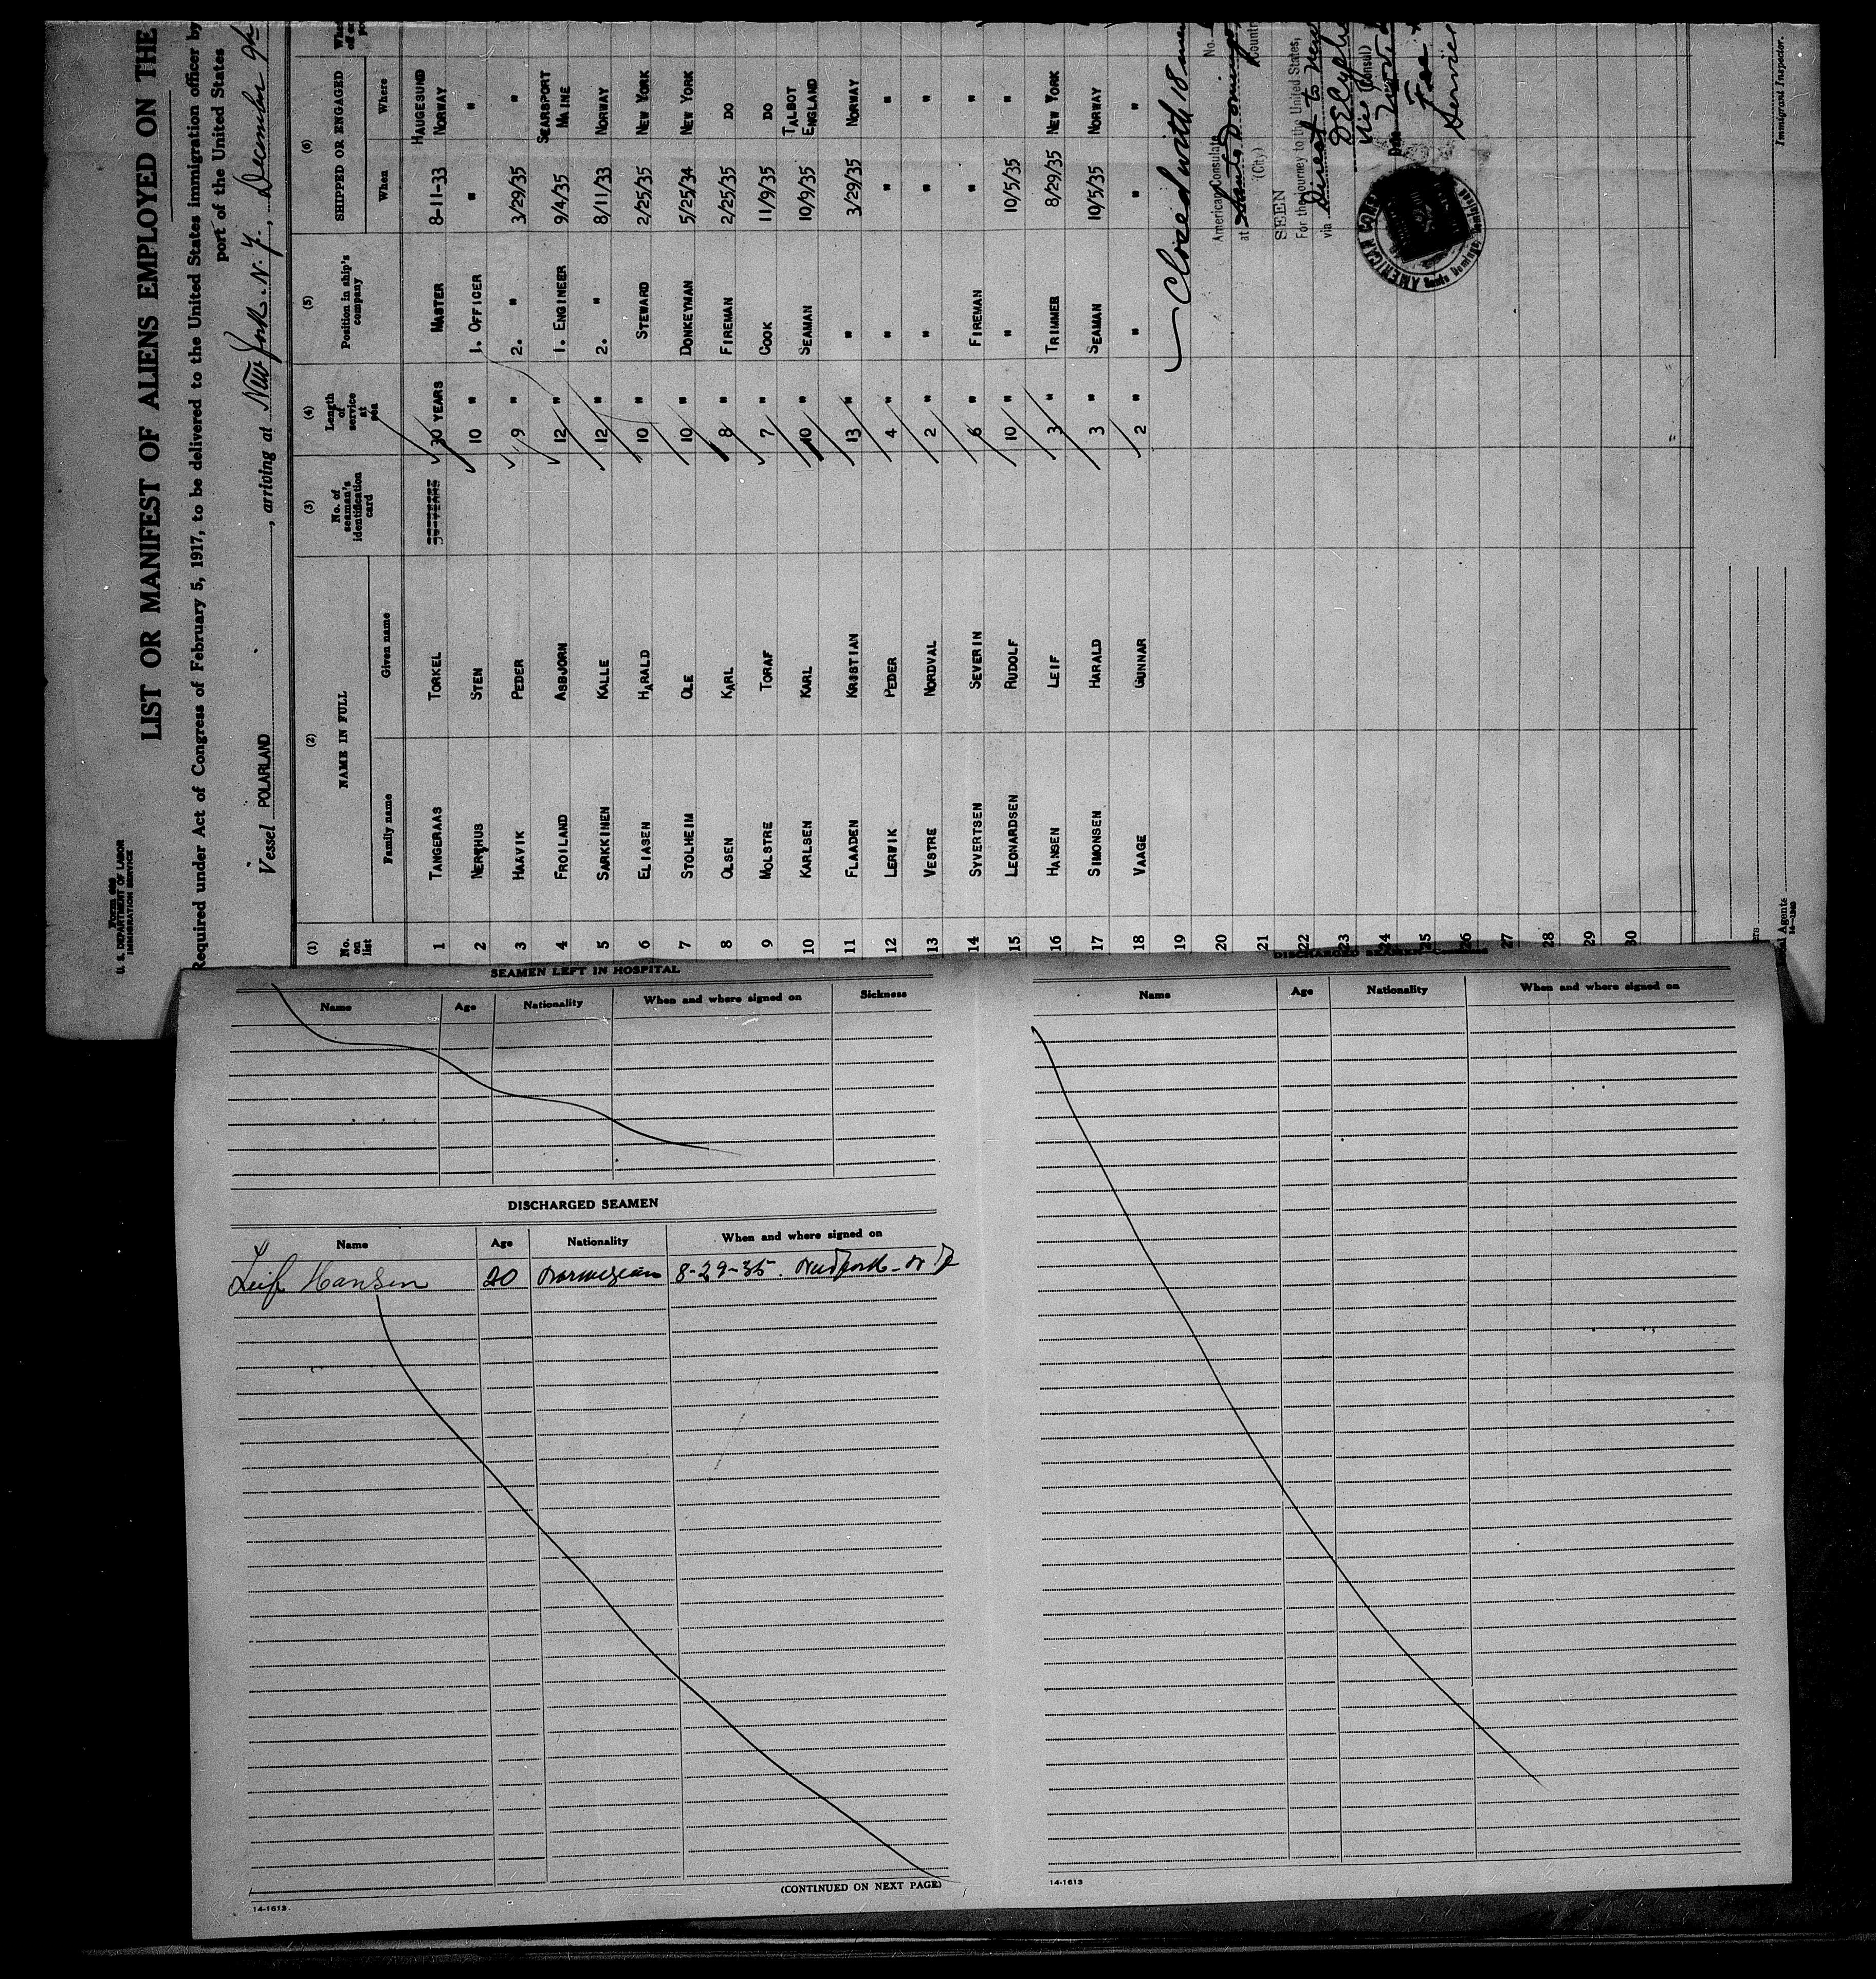 Form 689
U. S. DEPARTMENT OF LABOR
IMMIGRATION SERVICE
LIST OR MANIFEST OF ALIENS EMPLOYED ON THE
Required under Act of Congress of February 5, 1917, to be delivered to the United States immigration officer by
port of the United States
Vessel POLARLAND, arriving at New York. N.Y., December 9th
(1) (2) (3) (4) (5) (6)
No. on list NAME IN FULL No. of seaman's identification card Length of service at sea Position in ship's company SHIPPED OR ENGAGED
Family name Given name When Where
1 TANGERAAS TORKEL 30 YEARS 30 YEARS MASTER 8-11-33 HAUGESUND NORWAY
2 NERTHUS STEN 10 " 1. OFFICER " "
3 HAAVIK PEDER 9 " 2. " 3/29/35 "
4 FROILAND ASBJORN 12 " 1. ENGINEER 9/4/35 SEARSPORT MAINE
5 SARKKINEN KALLE 12 " 2. " 8/11/33 NORWAY
6 ELIASEN HARALD 10 " STEWARD 2/25/35 NEW YORK
7 STOLHEIM OLE 10 " DONKEYMAN 5/25/34 NEW YORK
8 OLSEN KARL 8 " FIREMAN 2/25/35 DO
9 MOLSTRE TORAF 7 " COOK 11/9/35 DO
10 KARLSEN KARL 10 " SEAMAN 10/9/35 TALBOT ENGLAND
11 FLAADEN KRISTIAN 13 " " 3/29/35 NORWAY
12 LERWIK PEDER 4 " " " "
13 VESTRE NORDVAL 2 " " " "
14 SYVERTSEN SEVERIN 6 " FIREMAN " "
15 LEONARDSEN RUDOLF 10 " " 10/5/35 "
16 HANSEN LEIF 3 " TRIMMER 8/29/35 NEW YORK
17 SIMONSEN HARALD 3 " SEAMAN 10/5/35 NORWAY
18 VAAGE GUNNAR 2 " " " "
19
20
21
22
23
24
25
26
27
28
29
30
Closed with 18 men
American Consulate No.
at Santo Domingo
(City) Country
SEEN
For the journey to the United States,
via Direct to New
Vice Consul
Fee
Service
AMERICAN CONS
Santo Domingo, Dominican
Immigrant Inspector.
al Agents
SEAMEN LEFT IN HOSPITAL
Name Age Nationality When and where signed on Sickness
DISCHARGED SEAMEN
Name Age Nationality When and where signed on
Leif Hansen 20 Norwegian 8-29-35. New York - N Y
(CONTINUED ON NEXT PAGE)
14-1613
DISCHARGED SEAMEN—Continued
Name Age Nationality When and where signed on
14-1613